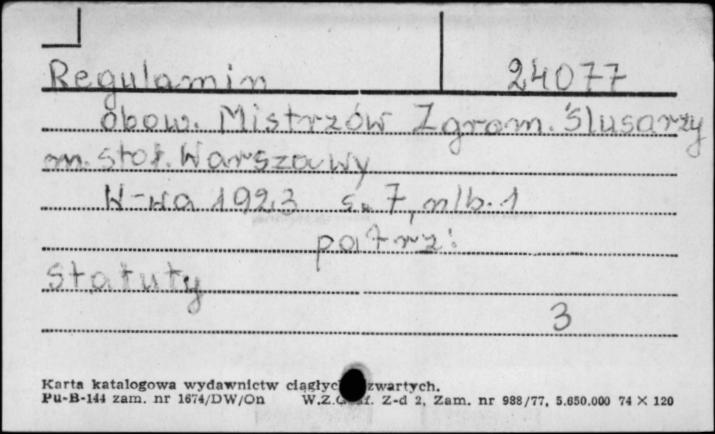 Regulamin 24077
obow. Mistrzów Zgrom. Ślusarzy
m. stoł. Warszawy
W-wa 1923 s. 7, nlb. 1
patrz:
Statuty
3
Karta katalogowa wydawnictw ciągłyc zwartych.
Pu-B-144 zam. nr 1674/DW/On W.Z.G f. Z-d 2, Zam. nr 988/77, 5.650.000 74 × 120